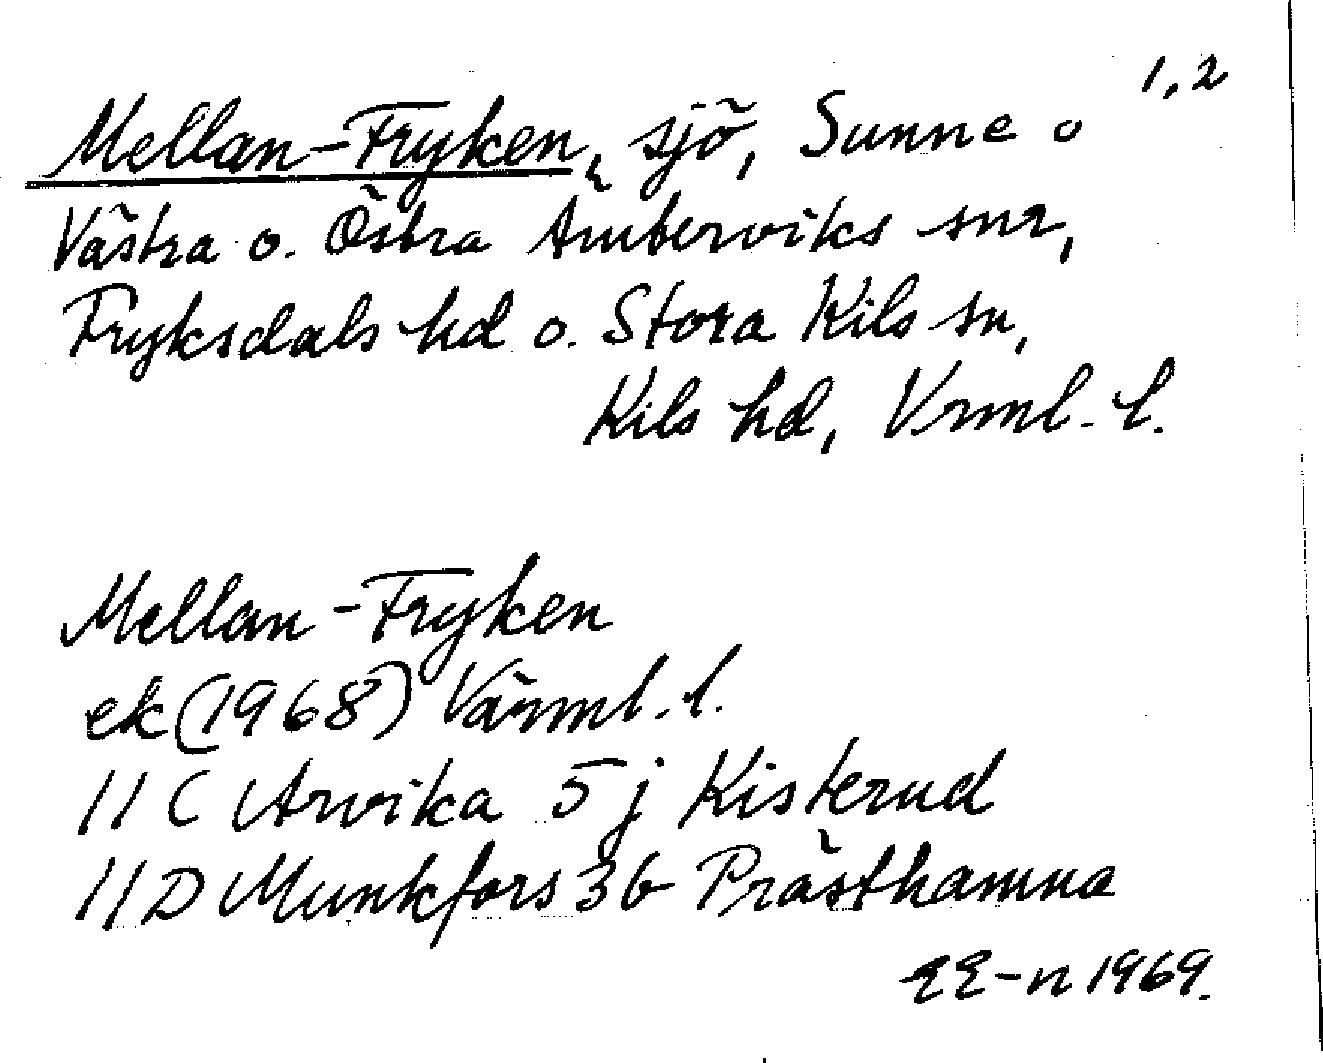 1,2
Mellan-Fryken, sjö, Sunne o
Västra o. Östra Ämterviks snr,
Fryksdals hd o. Stora Kils sn,
Kils hd, Vrml. l.
Mellan-Fryken
ek (1968) Värml. l.
11 C Arvika 5 j Kisterud
11 D Munkfors 3b Prästhamna
EE-n 1969.